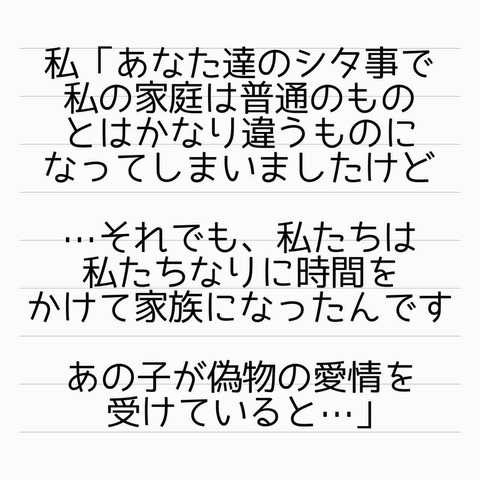 私「あなた達のシタ事で
私の家庭は普通のもの
とはかなり違うものに
なってしまいましたけど
…それでも、私たちは
私たちなりに時間を
かけて家族になったんです
あの子が偽物の愛情を
受けていると…」